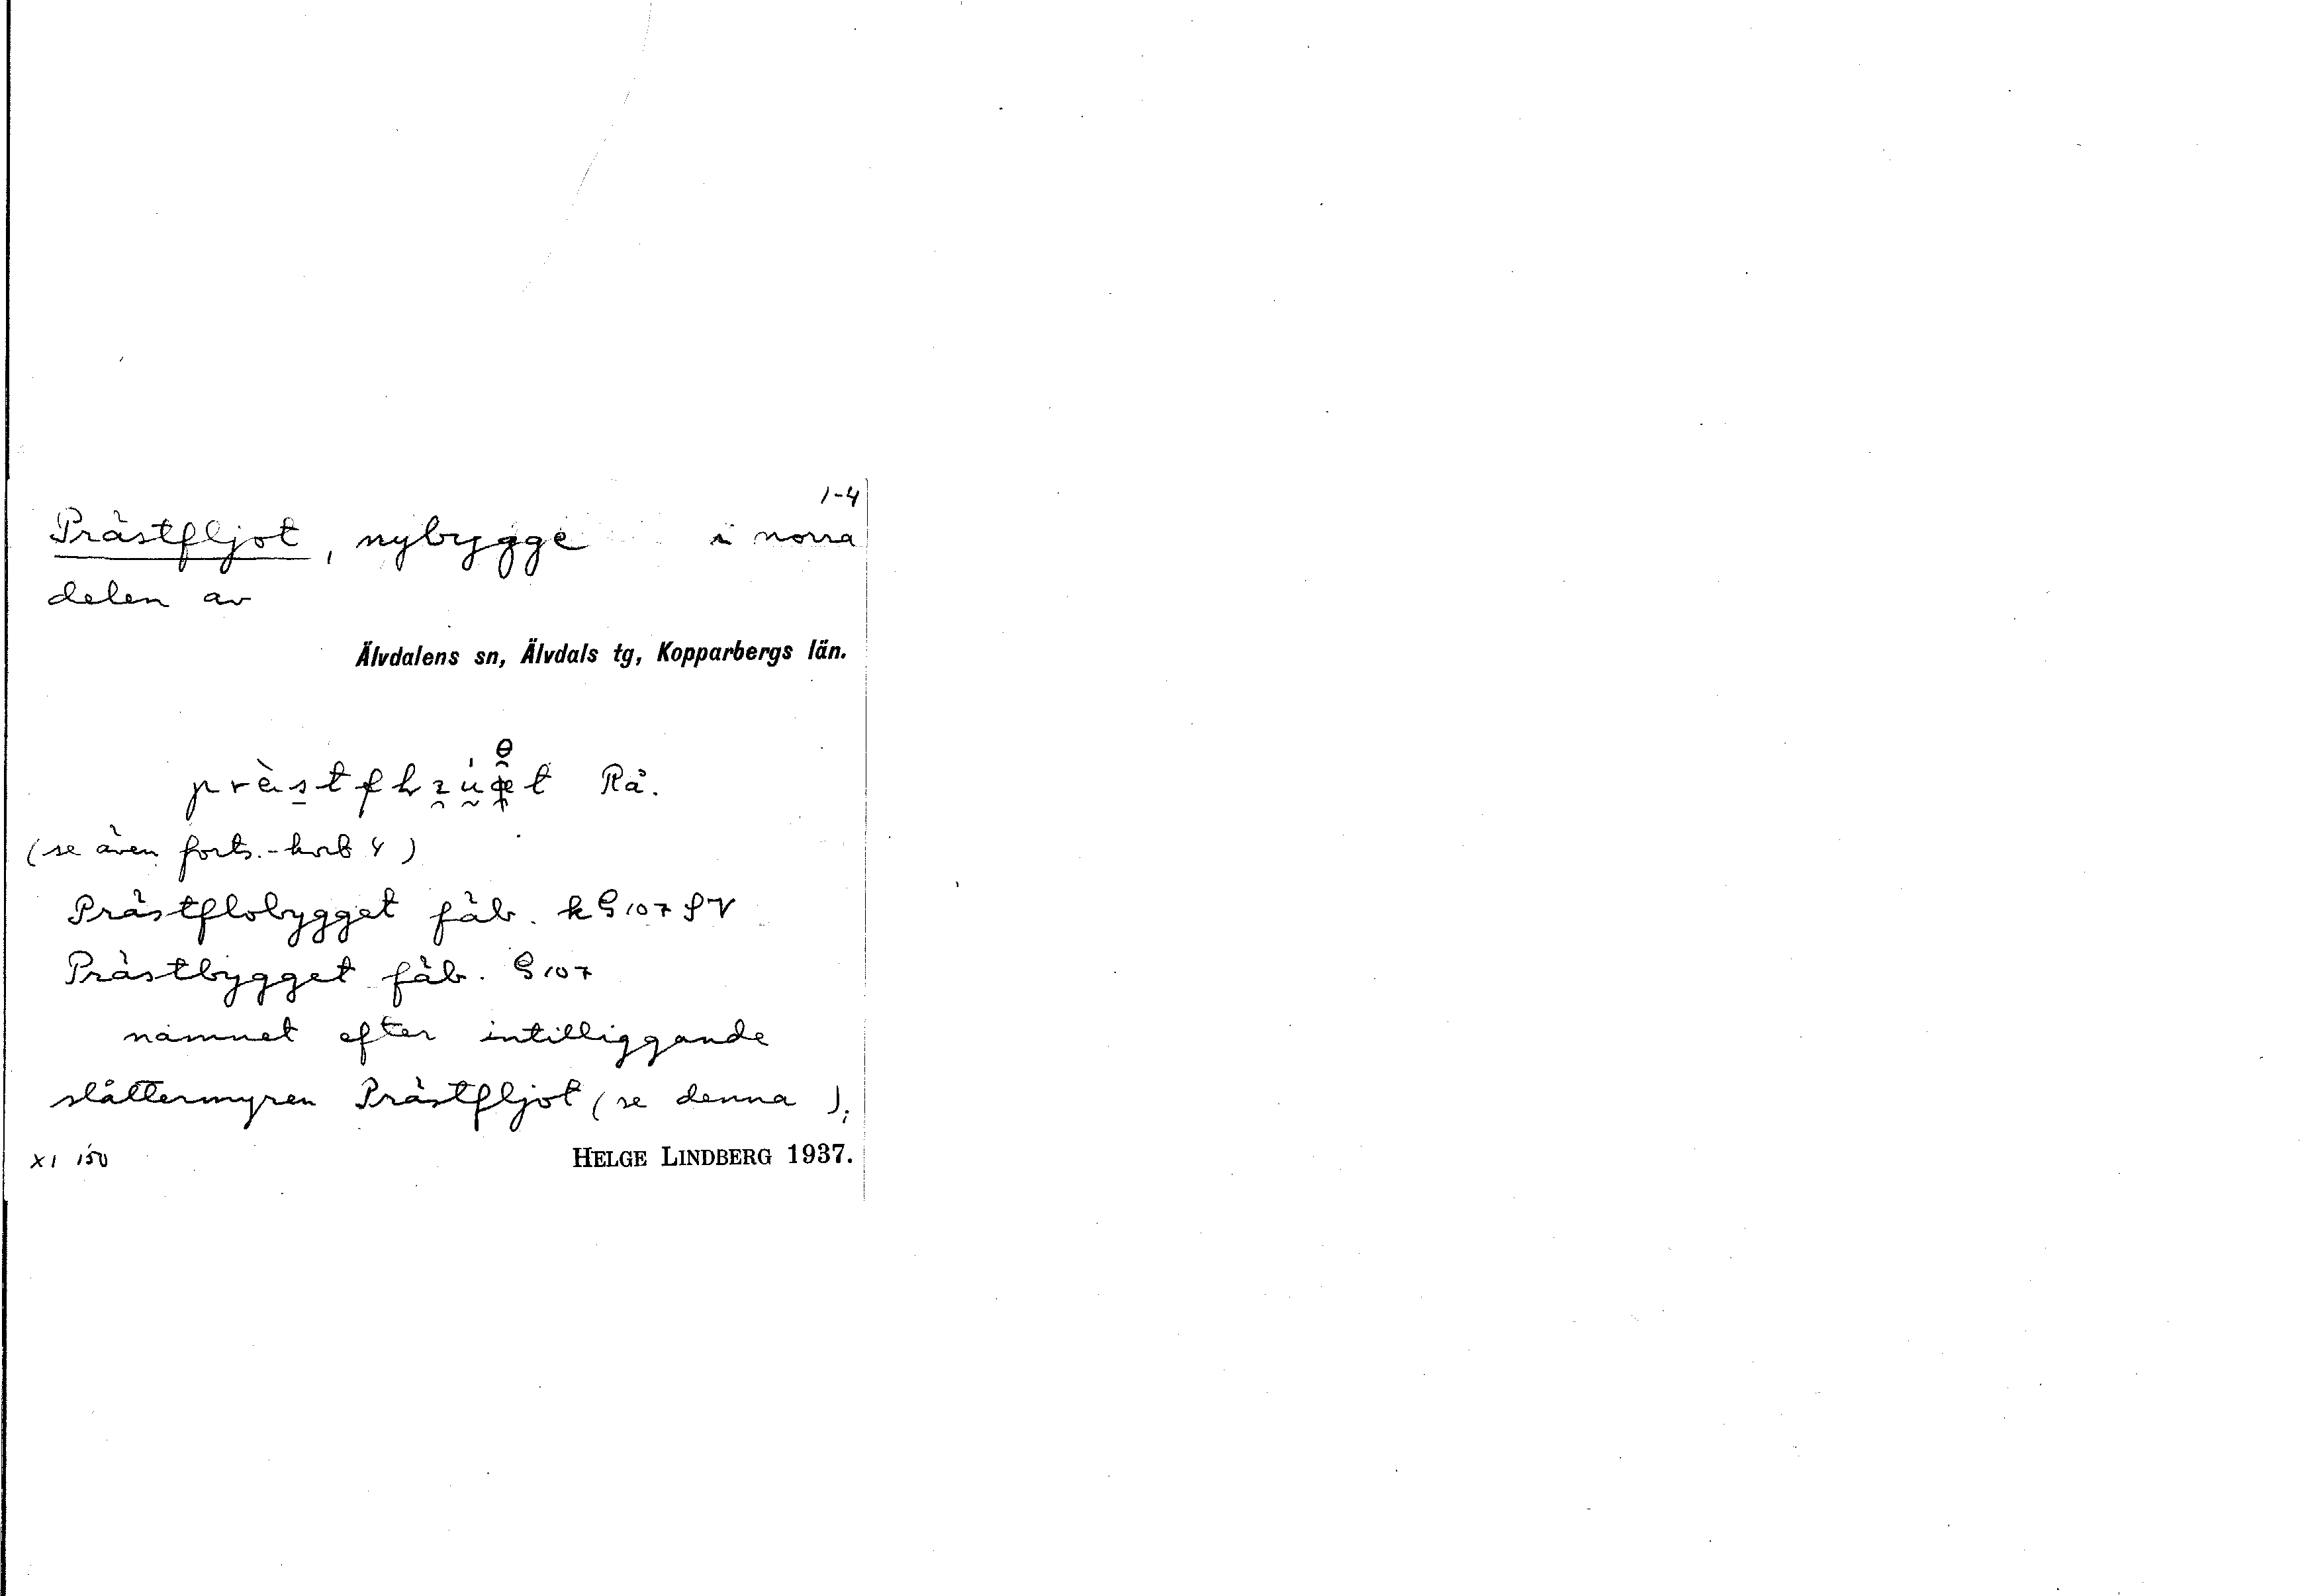 1-4
Prästfljot, nybygge i norra
delen av
Älvdalens sn, Älvdals tg, Kopparbergs län.
Rå.
(se även forts.-kort 4)
Prästflobygget fäb. k§107 SV
Prästbygget fäb. §107
nämnet efter intilliggande
slåttermyren Prästfljot (se denna);
XI 150
HELGE LINDBERG 1937.